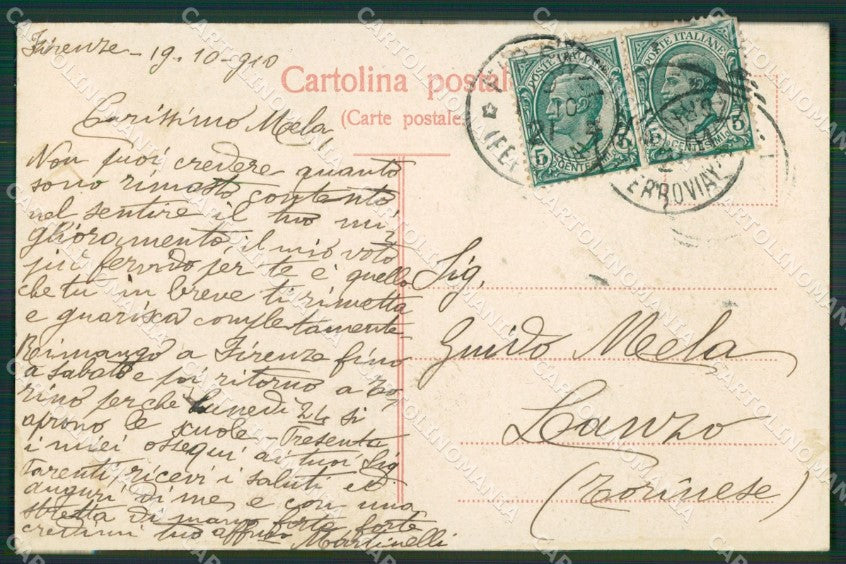 Firenze - 19-10-910
Cartolina postale
(Carte postale)
Carissimo Mela,
Non puoi credere quanto
sono rimasto contento
nel sentire il tuo mi-
glioramento, il mio voto
più fervido per te è quello
che tu in breve ti rimetta
e guarisca completamente
Rimango a Firenze fino
a sabato e poi ritorno a To-
rino perché lunedì 24 si
aprono le scuole - Presenta
i miei ossequi ai tuoi Sig.
Parenti ricevi i saluti ed
auguri di me e con una
stretta di mano forte forte
credimi tuo affmo Martinelli
POSTE ITALIANE
5
CENTESIMI
POSTE ITALIANE
5
CENTESIMI
FERROVIA
Sig.
Guido Mela
Lanzo
(Torinese)
CARTOLINOMANIA